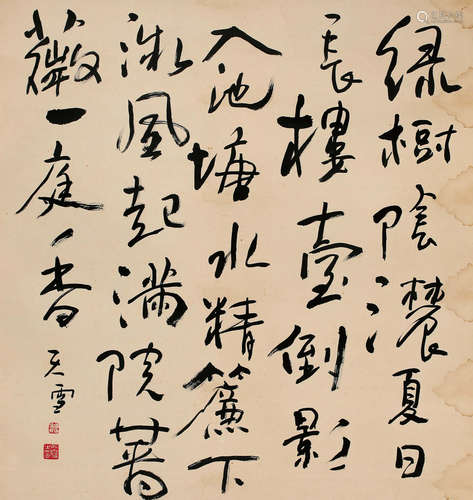 绿樹陰濃夏日
長樓臺倒影
入池塘水精簾下
微風起滿院薔
薇一庭香 天雪